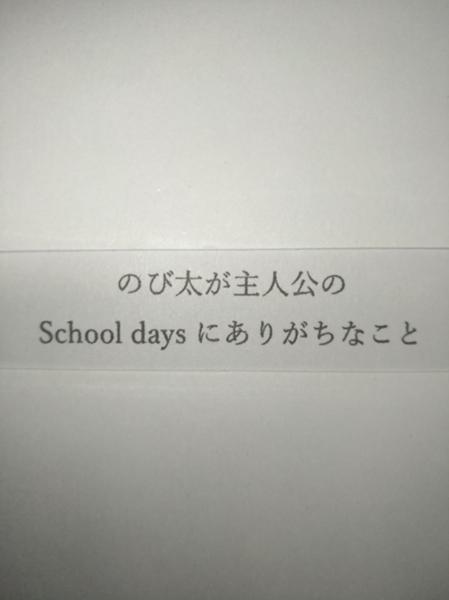 のび太が主人公の
School days にありがちなこと